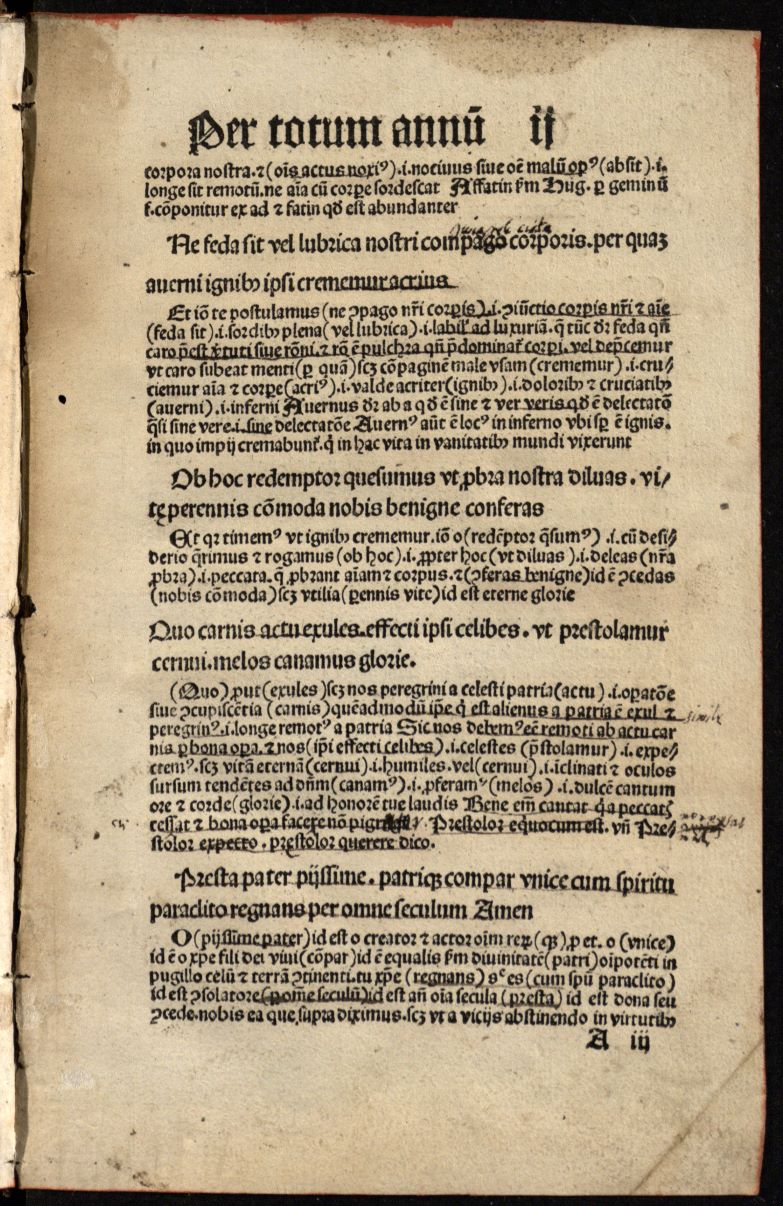 Per totum annū ij
corpora nostra.⁊(oīs actus noxiꝰ).i.nociuus siue oē malū opꝰ(absit).i.
longe sit remotū.ne aīa cū corꝑe sordescat Affatin ẜm Hug. ꝑ geminū
f.cōponitur ex ad ⁊ fatin qđ est abundanter
Ne feda sit vel lubrica nostri compago corporis.per quaꝫ
auerni ignibꝰ ipsi crememur acrius
Et iō te postulamus (ne ꝯpago nr̄i corꝑis).i.ꝯiūctio corꝑis nr̄i ⁊ aīe
(feda sit).i.sordibꝰ plena (vel lubrica).i.labil̓ ad luxuriā.q̄ tūc dr̄ feda qn̄
caro p̄est v̓tuti siue rōni.⁊ rō ē pulchra qn̄ p̄dominat̓ corꝑi.vel dep̄cemur
vt caro subeat menti(ꝑ quā)scꝫ cōpaginē male vsam (crememur).i.cru⸗
ciemur aīa ⁊ corꝑe(acriꝰ).i.valde acriter(ignibꝰ).i.doloribꝰ ⁊ cruciatibꝰ
(auerni).i.inferni Auernus dr̄ ab a qđ ē sine ⁊ ver veris qđ ē delectatō
q̄si sine vere.i.sine delectatōe Auernꝰ aūt ē locꝰ in inferno vbi sꝑ ē ignis.
in quo impij cremabunt̓.q̇ in hac vita in vanitatibꝰ mundi vixerunt
Ob hoc redemptor quesumus vt ꝓbra nostra diluas.vi⸗
tę perennis cōmoda nobis benigne conferas
Et qꝛ timemꝰ vt ignibꝰ crememur.iō o(redēptor q̄sumꝰ).i.cū desi⸗
derio q̄rimus ⁊ rogamus (ob hoc).i.ꝓpter hoc (vt diluas).i.deleas (nr̄a
ꝓbra).i.peccata.q̄ ꝓbrant aīam ⁊ corpus.⁊(ꝯferas benigne)id ē ꝯcedas
(nobis cōmoda)scꝫ vtilia(ꝑennis vite)id est eterne glorie
Quo carnis actu exules.effecti ipsi celibes.vt prestolamur
cernui.melos canamus glorie.
(Quo)ꝓut(exules)scꝫ nos peregrini a celesti patria(actu).i.oꝑatōe
siue ꝯcupiscētia (carnis)quēadmodū ip̄e q̇ est alienus a patria ē exul ⁊
peregrinꝰ.i.longe remotꝰ a patria Sic nos debemꝰ eē remoti ab actu car
nis ꝑ bona oꝑa.⁊ nos (ip̄i effecti celibes).i.celestes (p̄stolamur).i.expe⸗
ctemꝰ.scꝫ vitā eternā(cernui).i.humiles.vel(cernui).i.īclinati ⁊ oculos
sursum tendētes ad dn̄m (canamꝰ).i.ꝓferamꝰ(melos).i.dulcē cantum
ore ⁊ corde(glorie).i.ad honorē tue laudis Bene em̄ cantat q̇ a peccatꝭ
cessat ⁊ bona oꝑa facere nō Prestolor equocum est. vn̄ Pre⸗
stolor expecto.pręstolor querere dico.
Presta pater pijssime.patriqꝫ compar vnice cum spiritu
paraclito regnans per omne seculum Amen
O(pijssime pater)id est o creator ⁊ actor oīm reꝝ(qꝫ)ꝓ et. o (vnice)
id ē o xp̄e fili dei viui(cōpar)id ē equalis ẜm diuinitatē(patri)oīpotēti in
pugillo celū ⁊ terrā ꝯtinenti.tu xp̄e (regnans) sc̄ es(cum sp̄u paraclito)
id est ꝯsolatore(ꝑ om̄e seculū)id est añ oīa secula (presta) id est dona seu
ꝯcede.nobis ea que supra diximus.scꝫ vt a vicijs abstinendo in virtutibꝰ
A iij